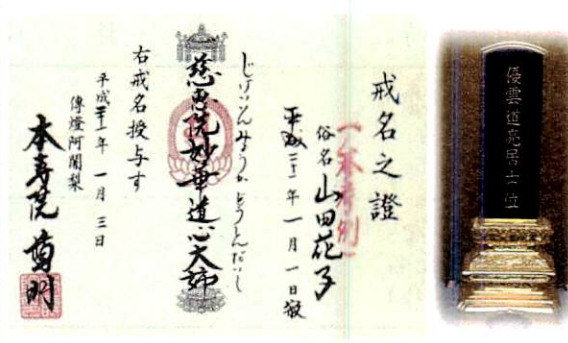 戒名之證
俗名 山田花子
平成二十一年一月一日歿
じけいいんみょうかどうしんだいし
慈恵院妙華道心大姉
右戒名授与す
平成二十一年一月三日
傳燈阿闍梨
本寿院
優雲道亮居士位